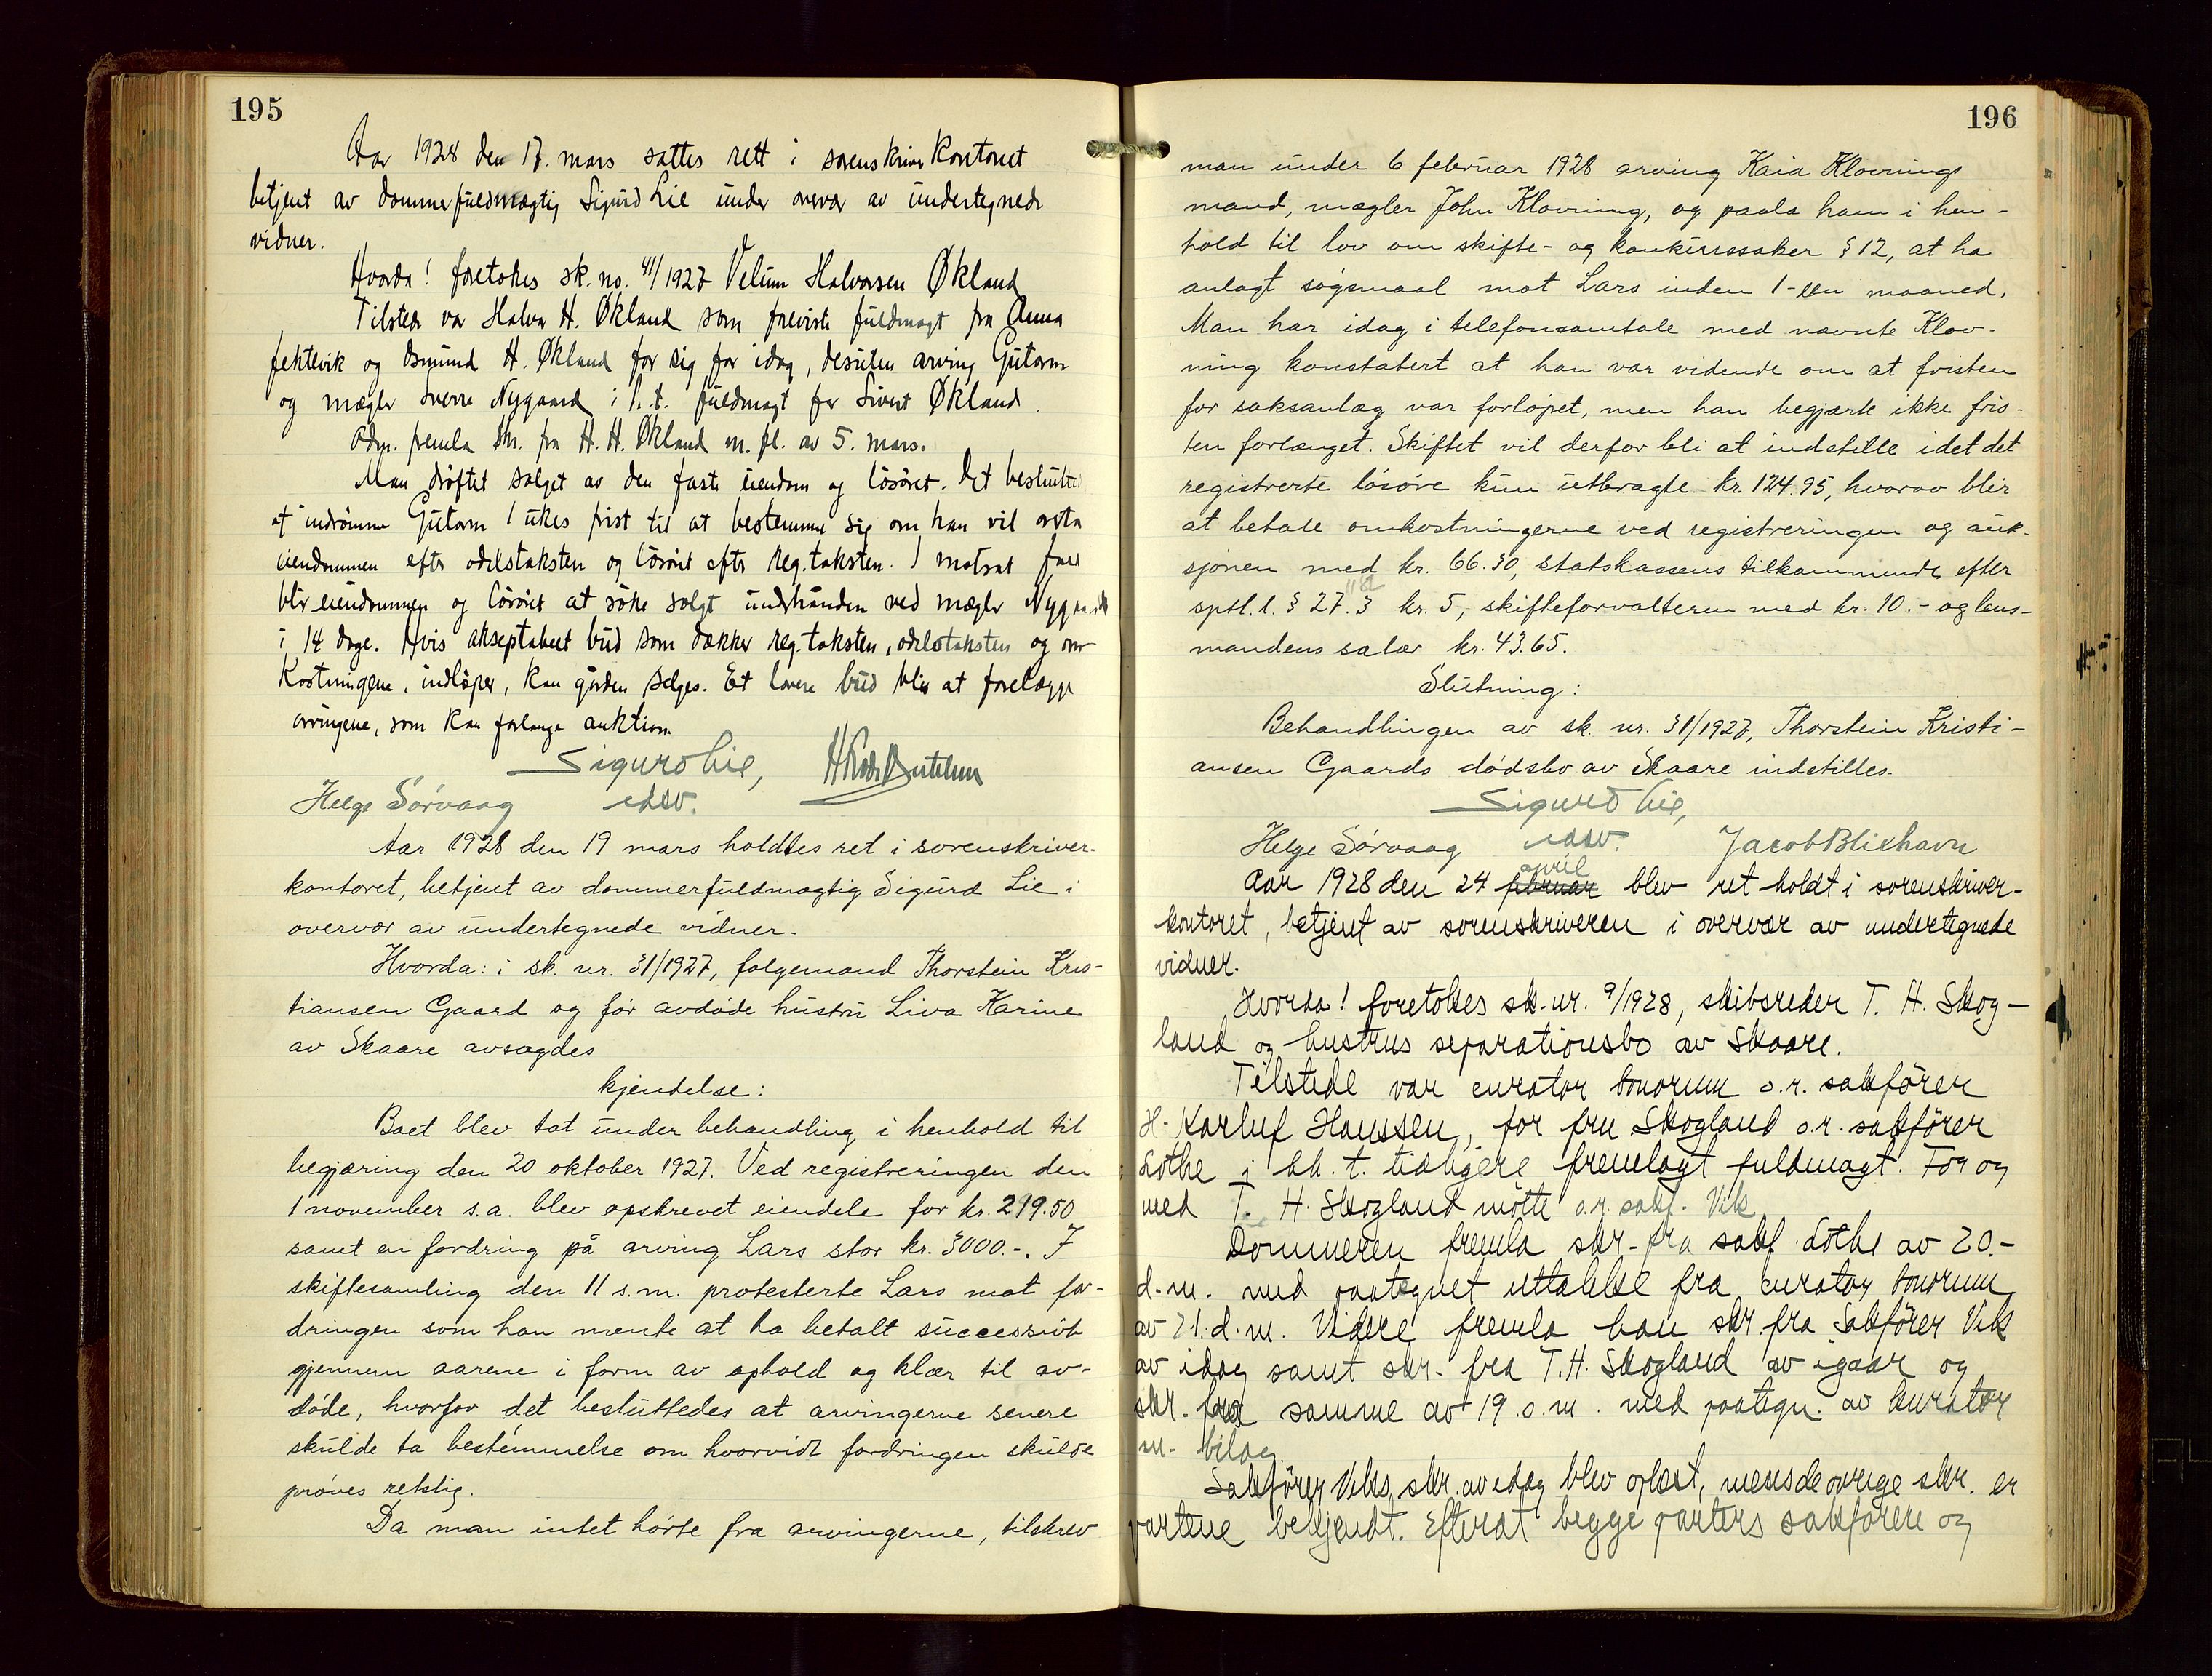 195
Aar 1928 den 17. mars sattes rett i sorenskriverkontoret
betjent av dommerfuldmægtig Sigurd Lie under overvær av undertegnede
vidner.
Hvorda! foretokes sk. no. 41/1927 Velum Halvorsen Økland
Tilstede var Halvor H. Økland som foreviste fuldmagt fra Anna
og Osmund H. Økland for sig for idag, desuten arving Gutorm
og mægler Sverre Nygaard i h. t. fuldmagt for Sivert Økland.
Adm. fremla skr. fra H. H. Økland m. fl. av 5. mars.
Man drøftet salget av den faste eiendom og løsøret. Det besluttedes
at indrømme Gutorm 1 ukes frist til at bestemme sig om han vil overta
eiendommen efter odelstaksten og løsøret efter reg.taksten. I motsat fald
blir eiendommen og løsøret at søke solgt underhaanden ved mægler Nygaard
i 14 dage. Hvis akseptabelt bud som dækker reg.taksten, odelstaksten og om-
kostningene, indløper, kan gården selges. Et lavere bud blir at forelægge
arvingene, som kan forlange auktion.
Sigurd Lie,
Helge Sørvaag edsv.
Aar 1928 den 19 mars holdtes ret i sorenskriver-
kontoret, betjent av dommerfuldmægtig Sigurd Lie i
overvær av undertegnede vidner.
Hvorda: i sk. nr. 31/1927, følgemand Thorstein Kris-
tiansen Gaard og før avdøde hustru Liva Karine
av Skaare avsagdes
kjendelse:
Boet blev tat under behandling i henhold til
begjæring den 20 oktober 1927. Ved registreringen den
1 november s.a. blev opskrevet eiendele for kr. 299.50
samt en fordring på arving Lars stor kr. 3000.-. I
skiftesamling den 11 s.m. protesterte Lars mot for-
dringen som han mente at ha betalt successivt
gjennem aarene i form av ophold og klær til av-
døde, hvorfor det besluttedes at arvingerne senere
skulde ta bestemmelse om hvorvidt fordringen skulde
prøves retslig.
Da man intet hørte fra arvingerne, tilskrev
196
man under 6 februar 1928 arving Kaia Klovnings
mand, mægler John Klovning, og paala ham i hen-
hold til lov om skifte- og konkurssaker § 12, at ha
anlagt søgsmaal mot Lars inden 1-en maaned.
Man har idag i telefonsamtale med nævnte Klov-
ning konstatert at han var vidende om at fristen
for saksanlæg var forløpet, men han begjærte ikke fris-
ten forlænget. Skiftet vil derfor bli at indstille idet det
registrerte løsøre kun utbragte kr. 124.95, hvorav blir
at betale omkostningerne ved registreringen og auk-
sjonen med kr. 66.30, statskassens tilkommende efter
sptl. l. § 27.3 kr. 5, skifteforvalteren med kr. 10.- og lens-
mandens salær kr. 43.65.
Slutning:
Behandlingen av sk. nr. 31/1927, Thorstein Kristi-
ansen Gaards dødsbo av Skaare indstilles.
Sigurd Lie,
Helge Sørvaag edsv. Jacob Blikhavn
april
Aar 1928 den 24 februar blev ret holdt i sorenskriver-
kontoret, betjent av sorenskriveren i overvær av undertegnede
vidner.
Hvorda! foretokes sk. nr. 9/1928, skibsreder T. H. Skog-
land og hustrus separationsbo av Skaare.
Tilstede var curator bonorum o.r. sakfører
H. Karluf Hanssen, for fru Skogland o.r. sakfører
Lothe i hh. t. tidligere fremlagt fuldmagt. For og
med T. H. Skogland møtte o.r. sakf. Vik
Dommeren fremla skr. fra sakf. Lothe av 20.-
d.m. med paategnet uttalelse fra curator bonorum
av 21. d.m. Videre fremla han skr. fra sakfører Vik
av idag samt skr. fra T.H. Skogland av igaar og
skr. fra samme av 19. d.m. med paategn. av kurator
m. bilag.
Sakfører Viks skr. av idag blev oplæst, mens de øvrige skr. er
partene bekjendt. Efterat begge parters sakførere og